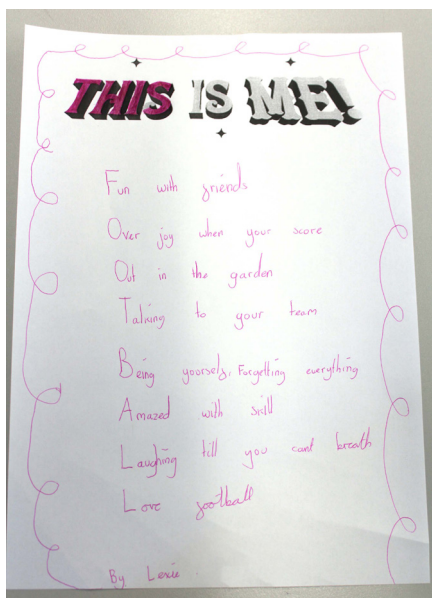 THIS IS ME!
Fun with friends
Over joy when your score
Out in the garden
Talking to your team
Being yourself, Forgetting everything
Amazed with skill
Laughing till you cant breath
Love football
By Lexie